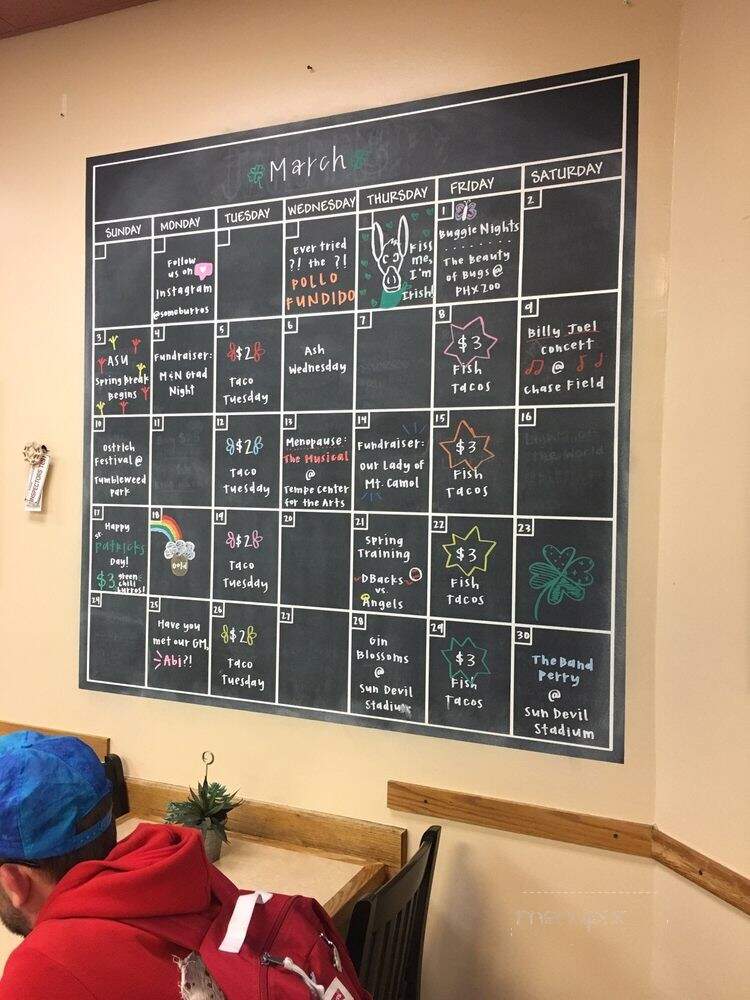 March
SUNDAY MONDAY TUESDAY WEDNESDAY THURSDAY FRIDAY SATURDAY
Follow
us on
Instagram
@someburros
Ever tried
?! the ?!
POLLO
FUNDIDO
Kiss
me,
I'm
Irish!
1
Buggie Nights
The Beauty
of Bugs @
PHX ZOO
2
3
ASU
Spring Break
Begins
4
Fundraiser:
M&N Grad
Night
5
$2
Taco
Tuesday
6
Ash
Wednesday
7
8
$3
Fish
Tacos
9
Billy Joel
Concert
@
Chase Field
10
Ostrich
Festival @
Tumbleweed
Park
11
12
$2
Taco
Tuesday
13
Menopause:
The Musical
@
Tempe Center
for the Arts
14
Fundraiser:
Our Lady of
Mt. Camol
15
$3
Fish
Tacos
16
17
Happy
St.
Patricks
Day!
$3 green
chili
burros!
18
Gold
19
$2
Taco
Tuesday
20
21
Spring
Training
DBacks
vs.
Angels
22
$3
Fish
Tacos
23
24
25
Have you
met our GM,
Abi?!
26
$2
Taco
Tuesday
27
28
Gin
Blossoms
@
Sun Devil
Stadium
29
$3
Fish
Tacos
30
The Band
Perry
@
Sun Devil
Stadium